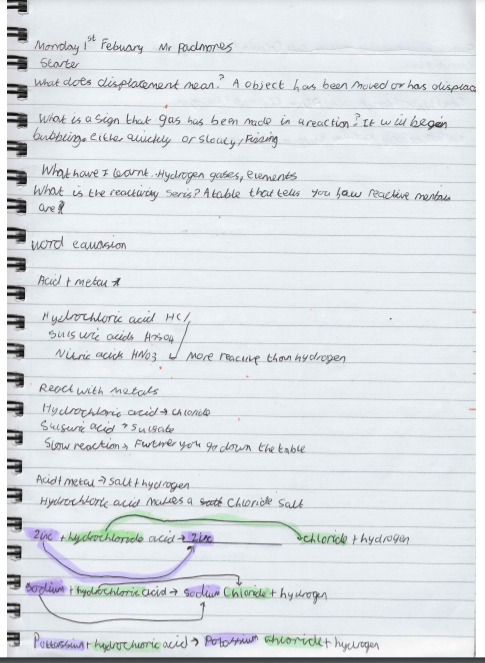 Monday 1st Febuary Mr Padmores
Starter
What does displacement mean? A object has been moved or has displac
What is a sign that gas has been made in a reaction? It will begin
bubbling either quickly or slowly, Fizzing
What have I learnt. Hydrogen gases, elements
What is the reactivity seris? A table that tells you how reactive
are
word equasion
Acid + metal →
Hydrochloric acid HCl
Sulsuric acids H2SO4
Nitric acids HNO3 More reactive than hydrogen
React with metals
Hydrochloric acid → chloride
Sulsuric acid → Sulsate
Slow reaction → Further you go down the table
Acid + metal → Salt + hydrogen
Hydrochloric acid makes a salt Chloride Salt
Zinc + hydrochloride acid → Zinc chloride + hydrogen
Sodium + hydrochloric acid → sodium Chloride + hydrogen
Pottassium + hydrochloric acid → Potassium chloride + hydrogen